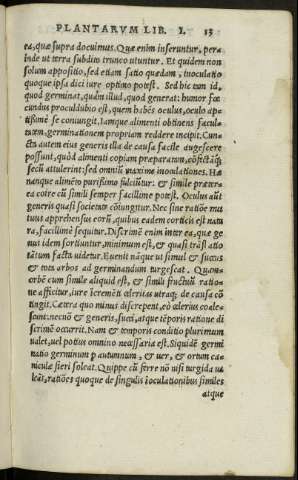 PLANTARVM LIB. I. 13
ea, quæ supra docuimus. Quæ enim inseruntur, pera
inde ut terra subdito trunco utuntur. Et quidem non
solum appositio, sed etiam satio quædam, inoculatio
quoque ipsa dici iure optimo potest. Sed hic tum id,
quod germinat, quàm illud, quod generat: humor fœ
cundus proculdubio est, quem habẽs oculus, oculo ap
tissimè se coniungit, iamque alimenti obtinens facul
tatem, germinationem propriam reddere incipit. Cun
cta autem eius generis illa de causa facile augescere
possunt, quòd alimenti copiam præparatam, cõfictãq;
secũ attulerint: sed omniũ maxime inoculationes. Ha
nanque alimẽto purißimo fulciũtur: & simile præter
ea coire cũ simili semper facillime potest. Oculus aũt
generis quasi societate cõiungitur. Nec sine ratiõe mu
tuus apprehensus eorũ, quibus eadem corticis est natu
ra, facillimè sequitur. Discrimẽ enim inter ea, quæ ge
nus idem sortiuntur, minimum est, & quasi trãslatio
tãtum facta uidetur. Euenit nãque ut simul & succus
& tota arbos ad germinandum turgescat. Quam
orbẽ cum simile aliquid est, & simili fructuũ ratio
ne afficitur, iure icremẽti cẽleritas utraq; de causa cõ
tingit. Cætera quo minus discrepent, eò cœlerius coale
scunt: necnõ & generis, succi, atque tẽporis ratione di
scrimẽ occurrit. Nam & temporis conditio plurimum
ualet, uel potius omnino necessaria est. Siquidẽ germi
natio germinum p autumnum, & uer, & ortum ca
niculæ fieri soleat. Quippe cũ ferre nõ nisi turgida ua
leãt, ratiões quoque de singulis ĩoculationibus similes
atque